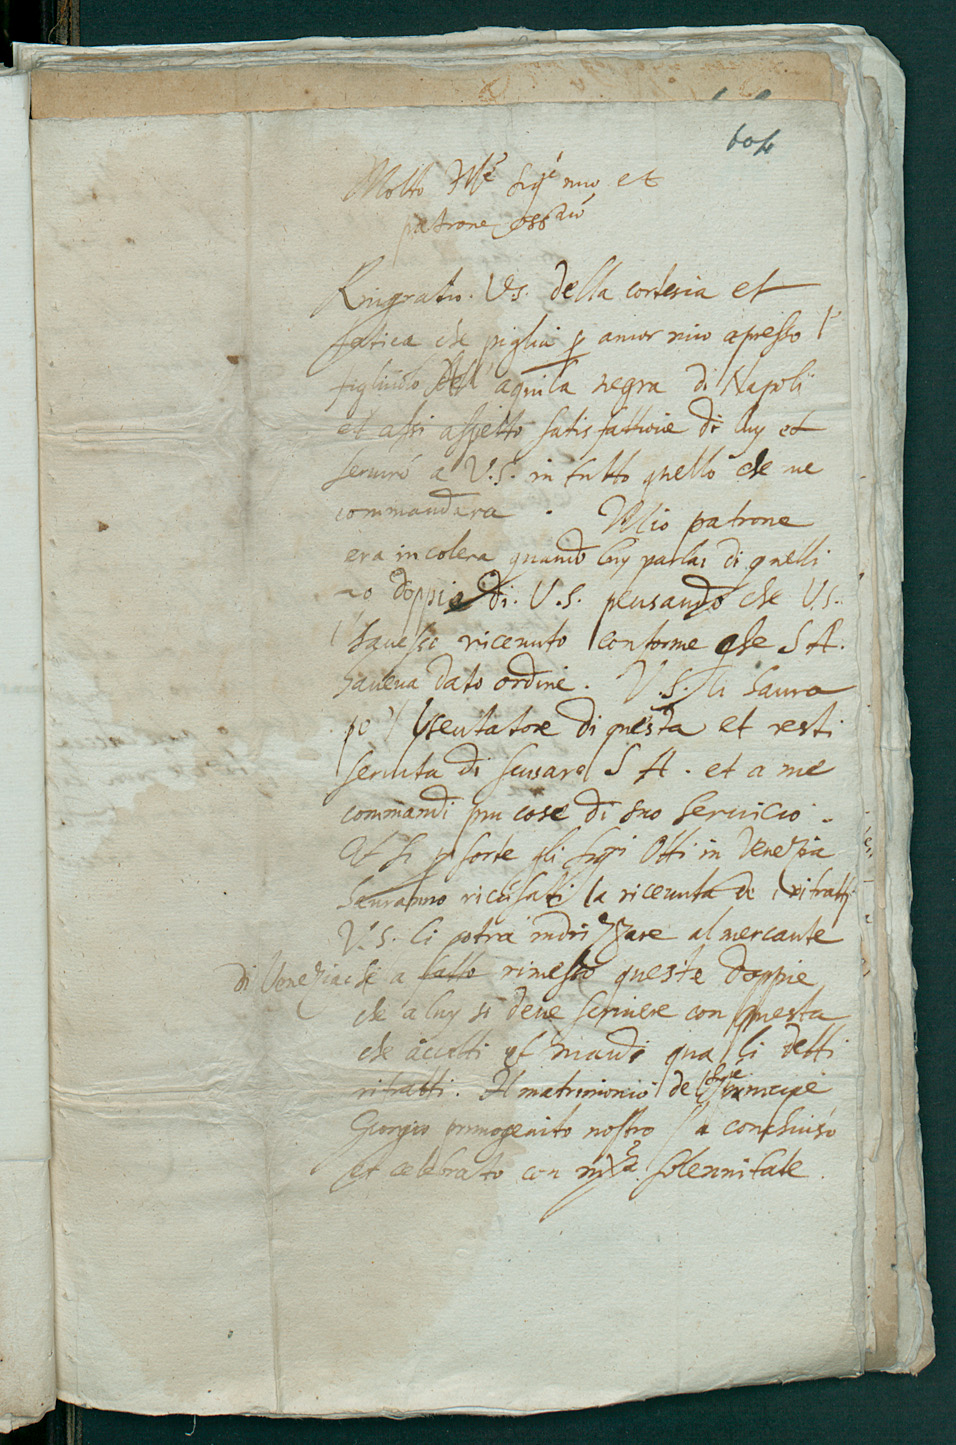 Molto Ill.e Sig.e mio et
patrone oss.mo
Ringratio. V.S. della cortesia et
fatica che piglia p amor mio apresso l'
figliuolo dell' aquila negra di Napoli
et assi aspetto satisfattione di luy et
serviró a V.S. in tutto quello che me
commandera. Mio patrone
era in colera quando luy parlai di quelli
20 doppie di. V.S. pensando che V.S.
l' havesse ricevuto conforme che S A.
haveva dato ordine. V.S. li havra
pntatore di questa et resti
servita di scusare S A. et a me
commandi piu cose di suo servicio.
Et si p sorte gli sigri Otti in Venezia
hauranno ricusati la ricevuta de ritratti
V.S. li potra indrizzare al mercante
di Venezia che a fatto rimesso queste doppie
che a luy si deve scrivere con questa
che accetti et mandi qua li detti
ritratti. Il matrimonio del Sre principe
Giorgio primogenito nostro a conchiuso
et celebrato con solennitate.